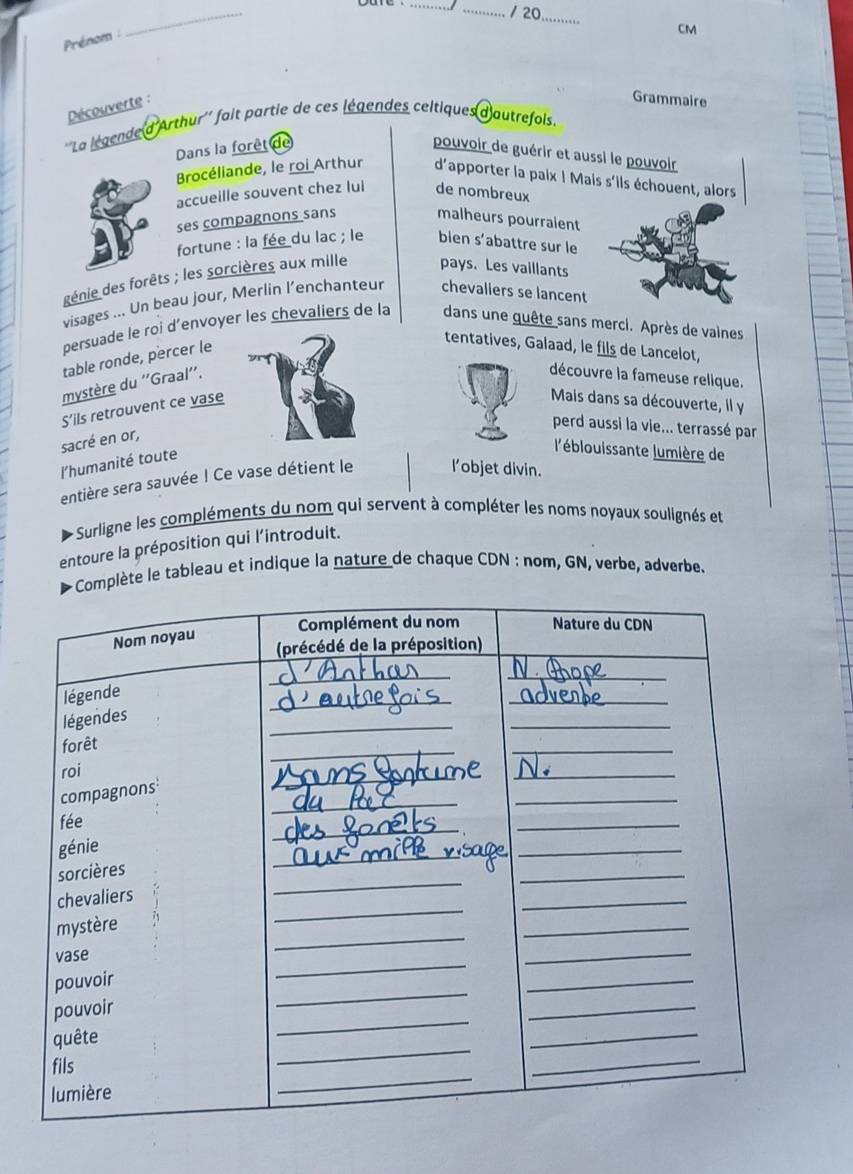 Prénom :
Date : ........../ ........... / 20..........
CM
Découverte :
Grammaire
"La légende d'Arthur" fait partie de ces légendes celtiques d'autrefois.
Dans la forêt de
Brocéliande, le roi Arthur
accueille souvent chez lui
ses compagnons sans
fortune : la fée du lac ; le
génie des forêts ; les sorcières aux mille
visages ... Un beau jour, Merlin l'enchanteur
persuade le roi d'envoyer les chevaliers de la
table ronde, percer le
mystère du "Graal".
S'ils retrouvent ce vase
sacré en or,
l'humanité toute
entière sera sauvée ! Ce vase détient le
pouvoir de guérir et aussi le pouvoir
d'apporter la paix ! Mais s'ils échouent, alors
de nombreux
malheurs pourraient
bien s'abattre sur le
pays. Les vaillants
chevaliers se lancent
dans une quête sans merci. Après de vaines
tentatives, Galaad, le fils de Lancelot,
découvre la fameuse relique.
Mais dans sa découverte, il y
perd aussi la vie... terrassé par
l'éblouissante lumière de
l'objet divin.
▶Surligne les compléments du nom qui servent à compléter les noms noyaux soulignés et
entoure la préposition qui l'introduit.
▶Complète le tableau et indique la nature de chaque CDN : nom, GN, verbe, adverbe.
Nom noyau Complément du nom (précédé de la préposition) Nature du CDN
légende d'Arthur N.
légendes d'autrefois adverbe
forêt
roi
compagnons sans fortune N.
fée du lac
génie des forêts
sorcières aux mille visage
chevaliers
mystère
vase
pouvoir
pouvoir
quête
fils
lumière